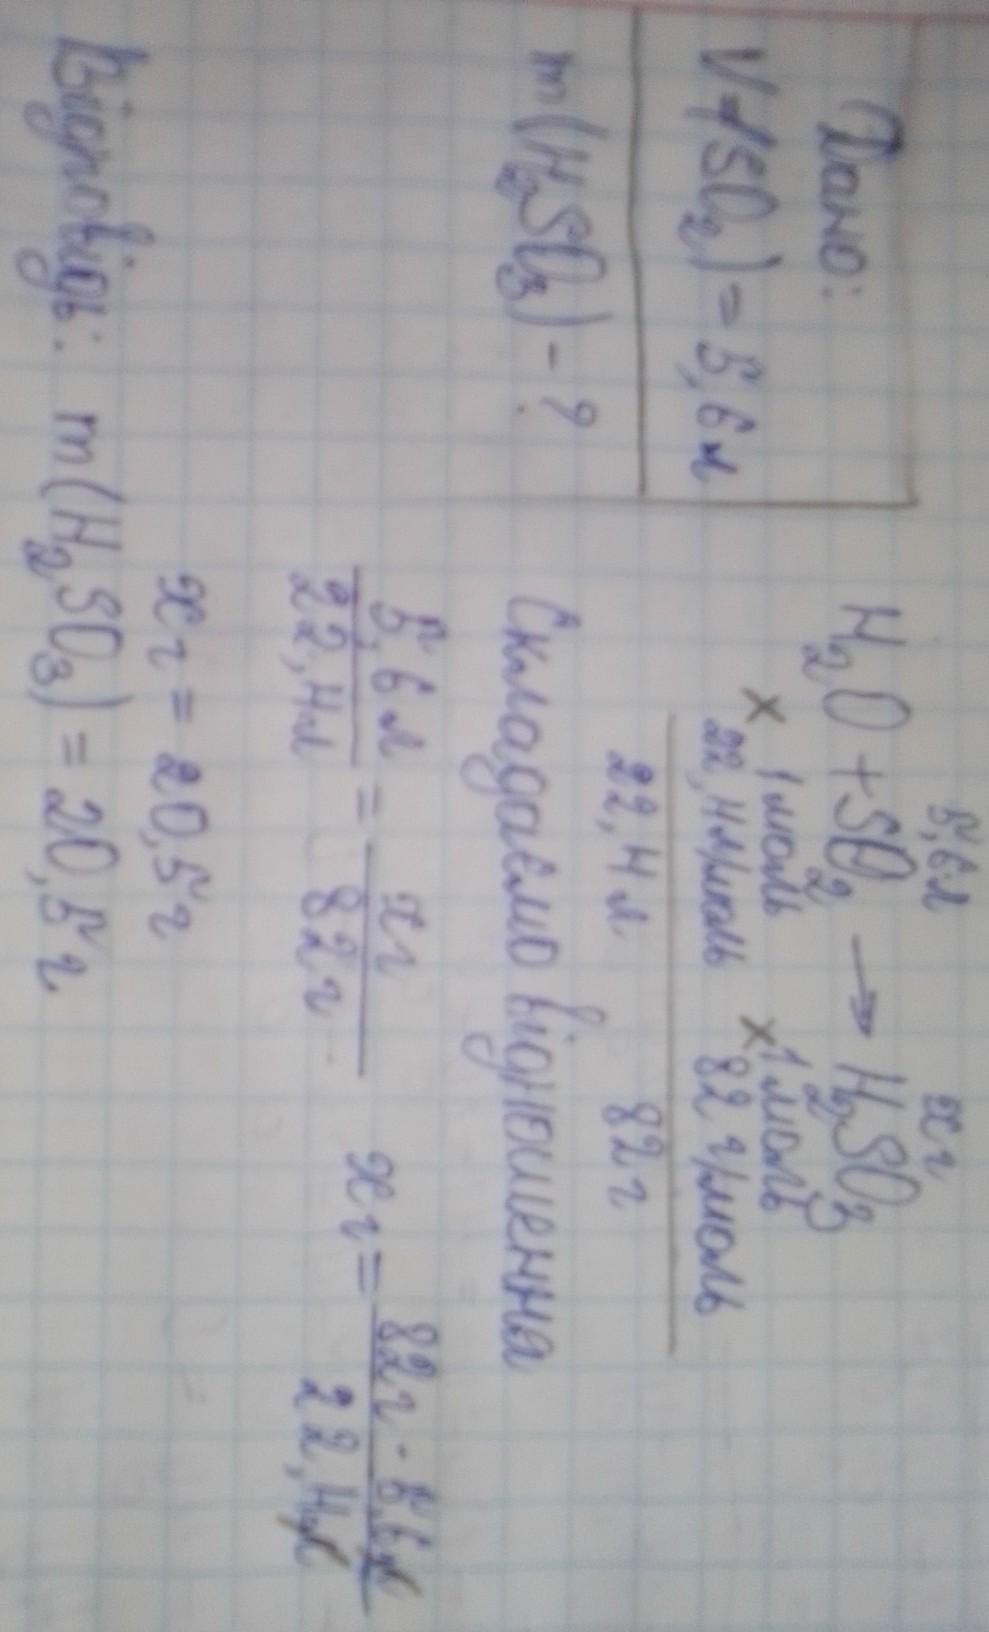 Дано:
V(SO₂) = 5,6 л
m(H₂SO₃) - ?
5,6 л x г
H₂O + SO₂ → H₂SO₃
× 1 моль × 1 моль
22,4 л/моль 82 г/моль
22,4 л 82 г
Складаємо відношення
5,6 л / 22,4 л = x г / 82 г x г = 82 г · 5,6 л / 22,4 л
x г = 20,5 г
Відповідь: m(H₂SO₃) = 20,5 г